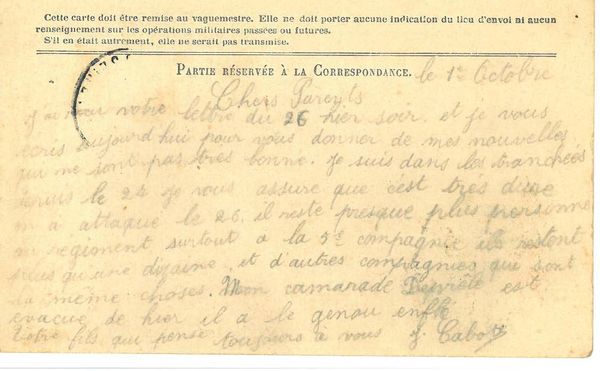 Cette carte doit être remise au vaguemestre. Elle ne doit porter aucune indication du lieu d'envoi ni aucun
renseignement sur les opérations militaires passées ou futures.
S'il en était autrement, elle ne serait pas transmise.
PARTIE RÉSERVÉE À LA CORRESPONDANCE.
le 1r Octobre
Chers Parents
J'ai votre lettre du 26 hier soir et je vous
ecris aujourd'hui pour vous donner de mes nouvelles
qui ne sont pas très bonne. Je suis dans les tranchées
depuis le 24 je vous assure que c'est très dure
on a attaque le 26. il reste presque plus personne
au regiment surtout a la 5e compagnie ils restent
plus qu'une dizaine, et d'autres compagnies qui sont
la même choses. Mon camarade est
evacue de hier il a le genou enflé
Votre fils qui pense toujours à vous J.